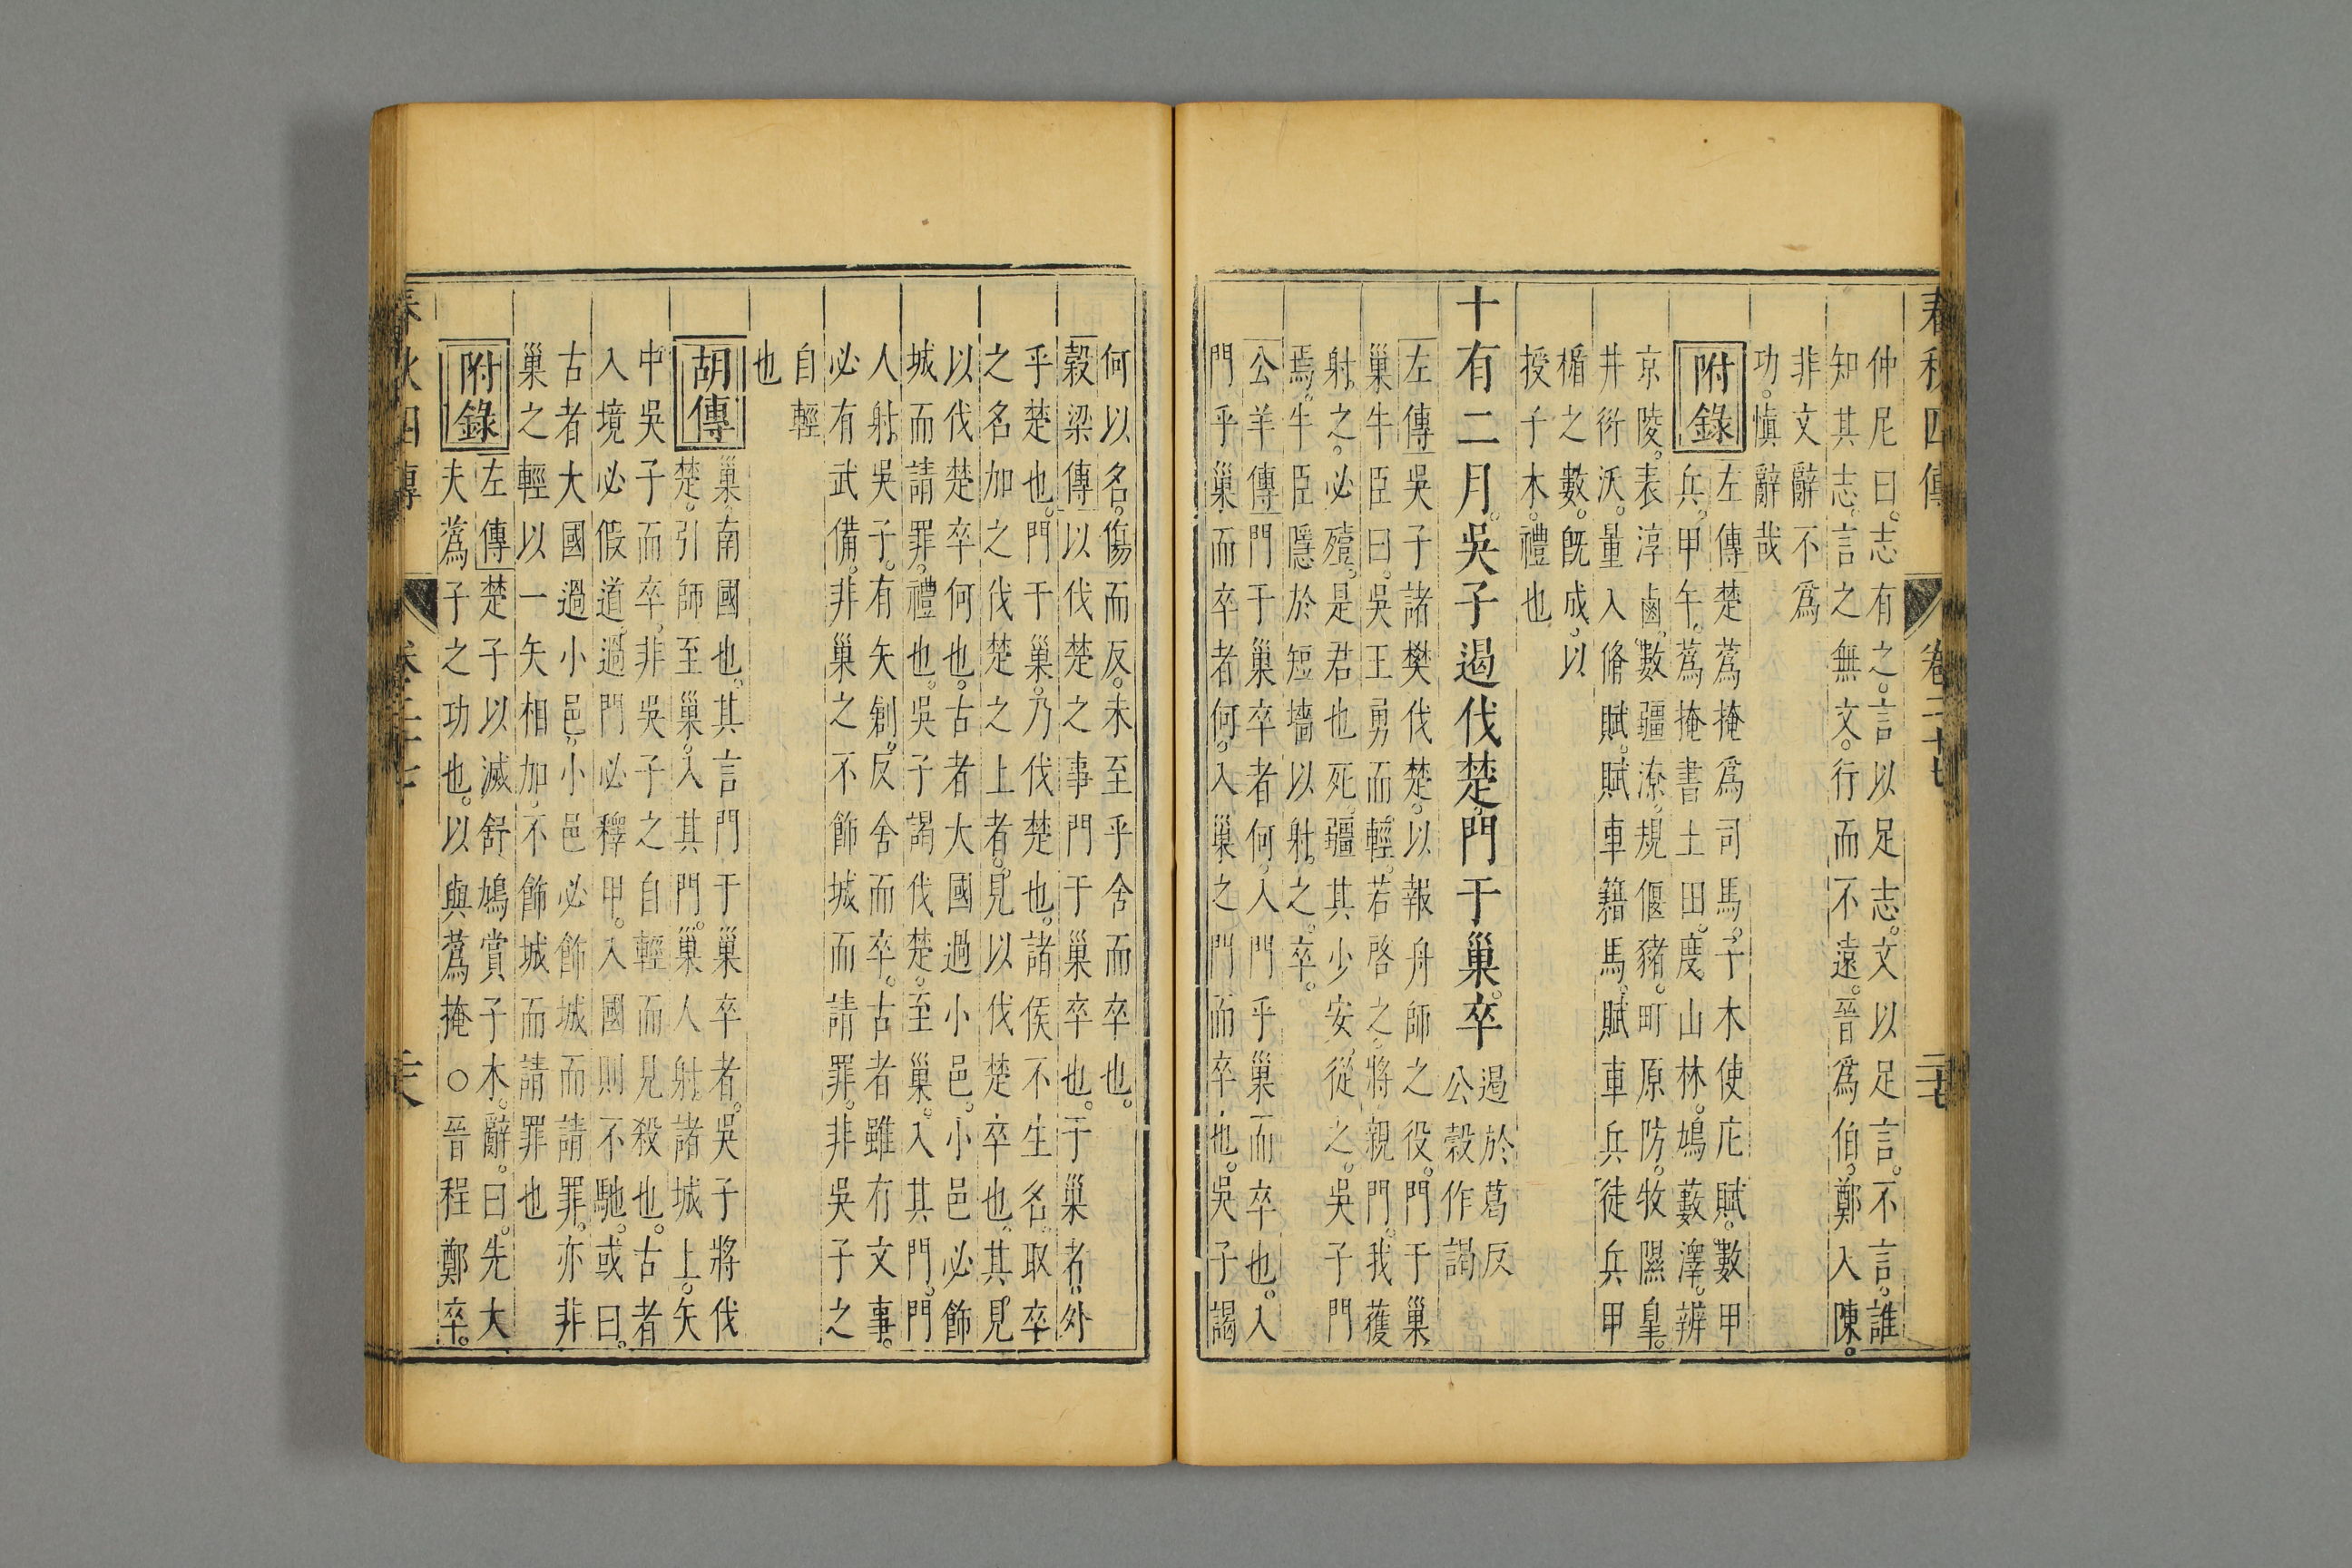 春秋四傳 卷二十七
仲尼曰。志有之。言以足志。文以足言。不言。誰
知其志。言之無文。行而不遠。晉爲伯。鄭入陳。
非文辭不爲
功。愼辭哉
附錄
左傳楚蔿掩爲司馬。子木使庀賦。數甲
兵。甲午。蔿掩書土田。度山林。鳩藪澤。辨
京陵。表淳鹵。數疆潦。規偃豬。町原防。牧隰皐。
井衍沃。量入脩賦。賦車籍馬。賦車兵徒兵甲
楯之數。旣成。以
授子木。禮也
十有二月。吳子遏伐楚。門于巢。卒
遏於葛反
公穀作謁
左傳吳子諸樊伐楚。以報舟師之役。門于巢
巢牛臣曰。吳王勇而輕。若啓之。將親門。我獲
射之。必殪。是君也死。疆其少安。從之。吳子門
焉。牛臣隱於短墻以射之。卒。
公羊傳門于巢卒者何。入門乎巢而卒也。入
門乎巢而卒者何。入巢之門而卒也。吳子謁
何以名。傷而反。未至乎舍而卒也。
穀梁傳以伐楚之事門于巢卒也。于巢者。外
乎楚也。門于巢。乃伐楚也。諸侯不生名。取卒
之名加之伐楚之上者。見以伐楚卒也。其見
以伐楚卒何也。古者大國過小邑。小邑必飾
城而請罪。禮也。吳子謁伐楚。至巢。入其門。門
人射吳子。有矢創。反舍而卒。古者雖有文事。
必有武備。非巢之不飾城而請罪。非吳子之
自輕
也
胡傳
巢。南國也。其言門于巢卒者。吳子將伐
楚。引師至巢。入其門。巢人射諸城上。矢
中吳子而卒。非吳子之自輕而見殺也。古者
入境必假道。過門必釋甲。入國則不馳。或曰。
古者大國過小邑。小邑必飾城而請罪。亦非
巢之輕以一矢相加。不飾城而請罪也
附錄
左傳楚子以滅舒鳩賞子木。辭。曰。先大
夫蔿子之功也。以與蔿掩○晉程鄭卒。